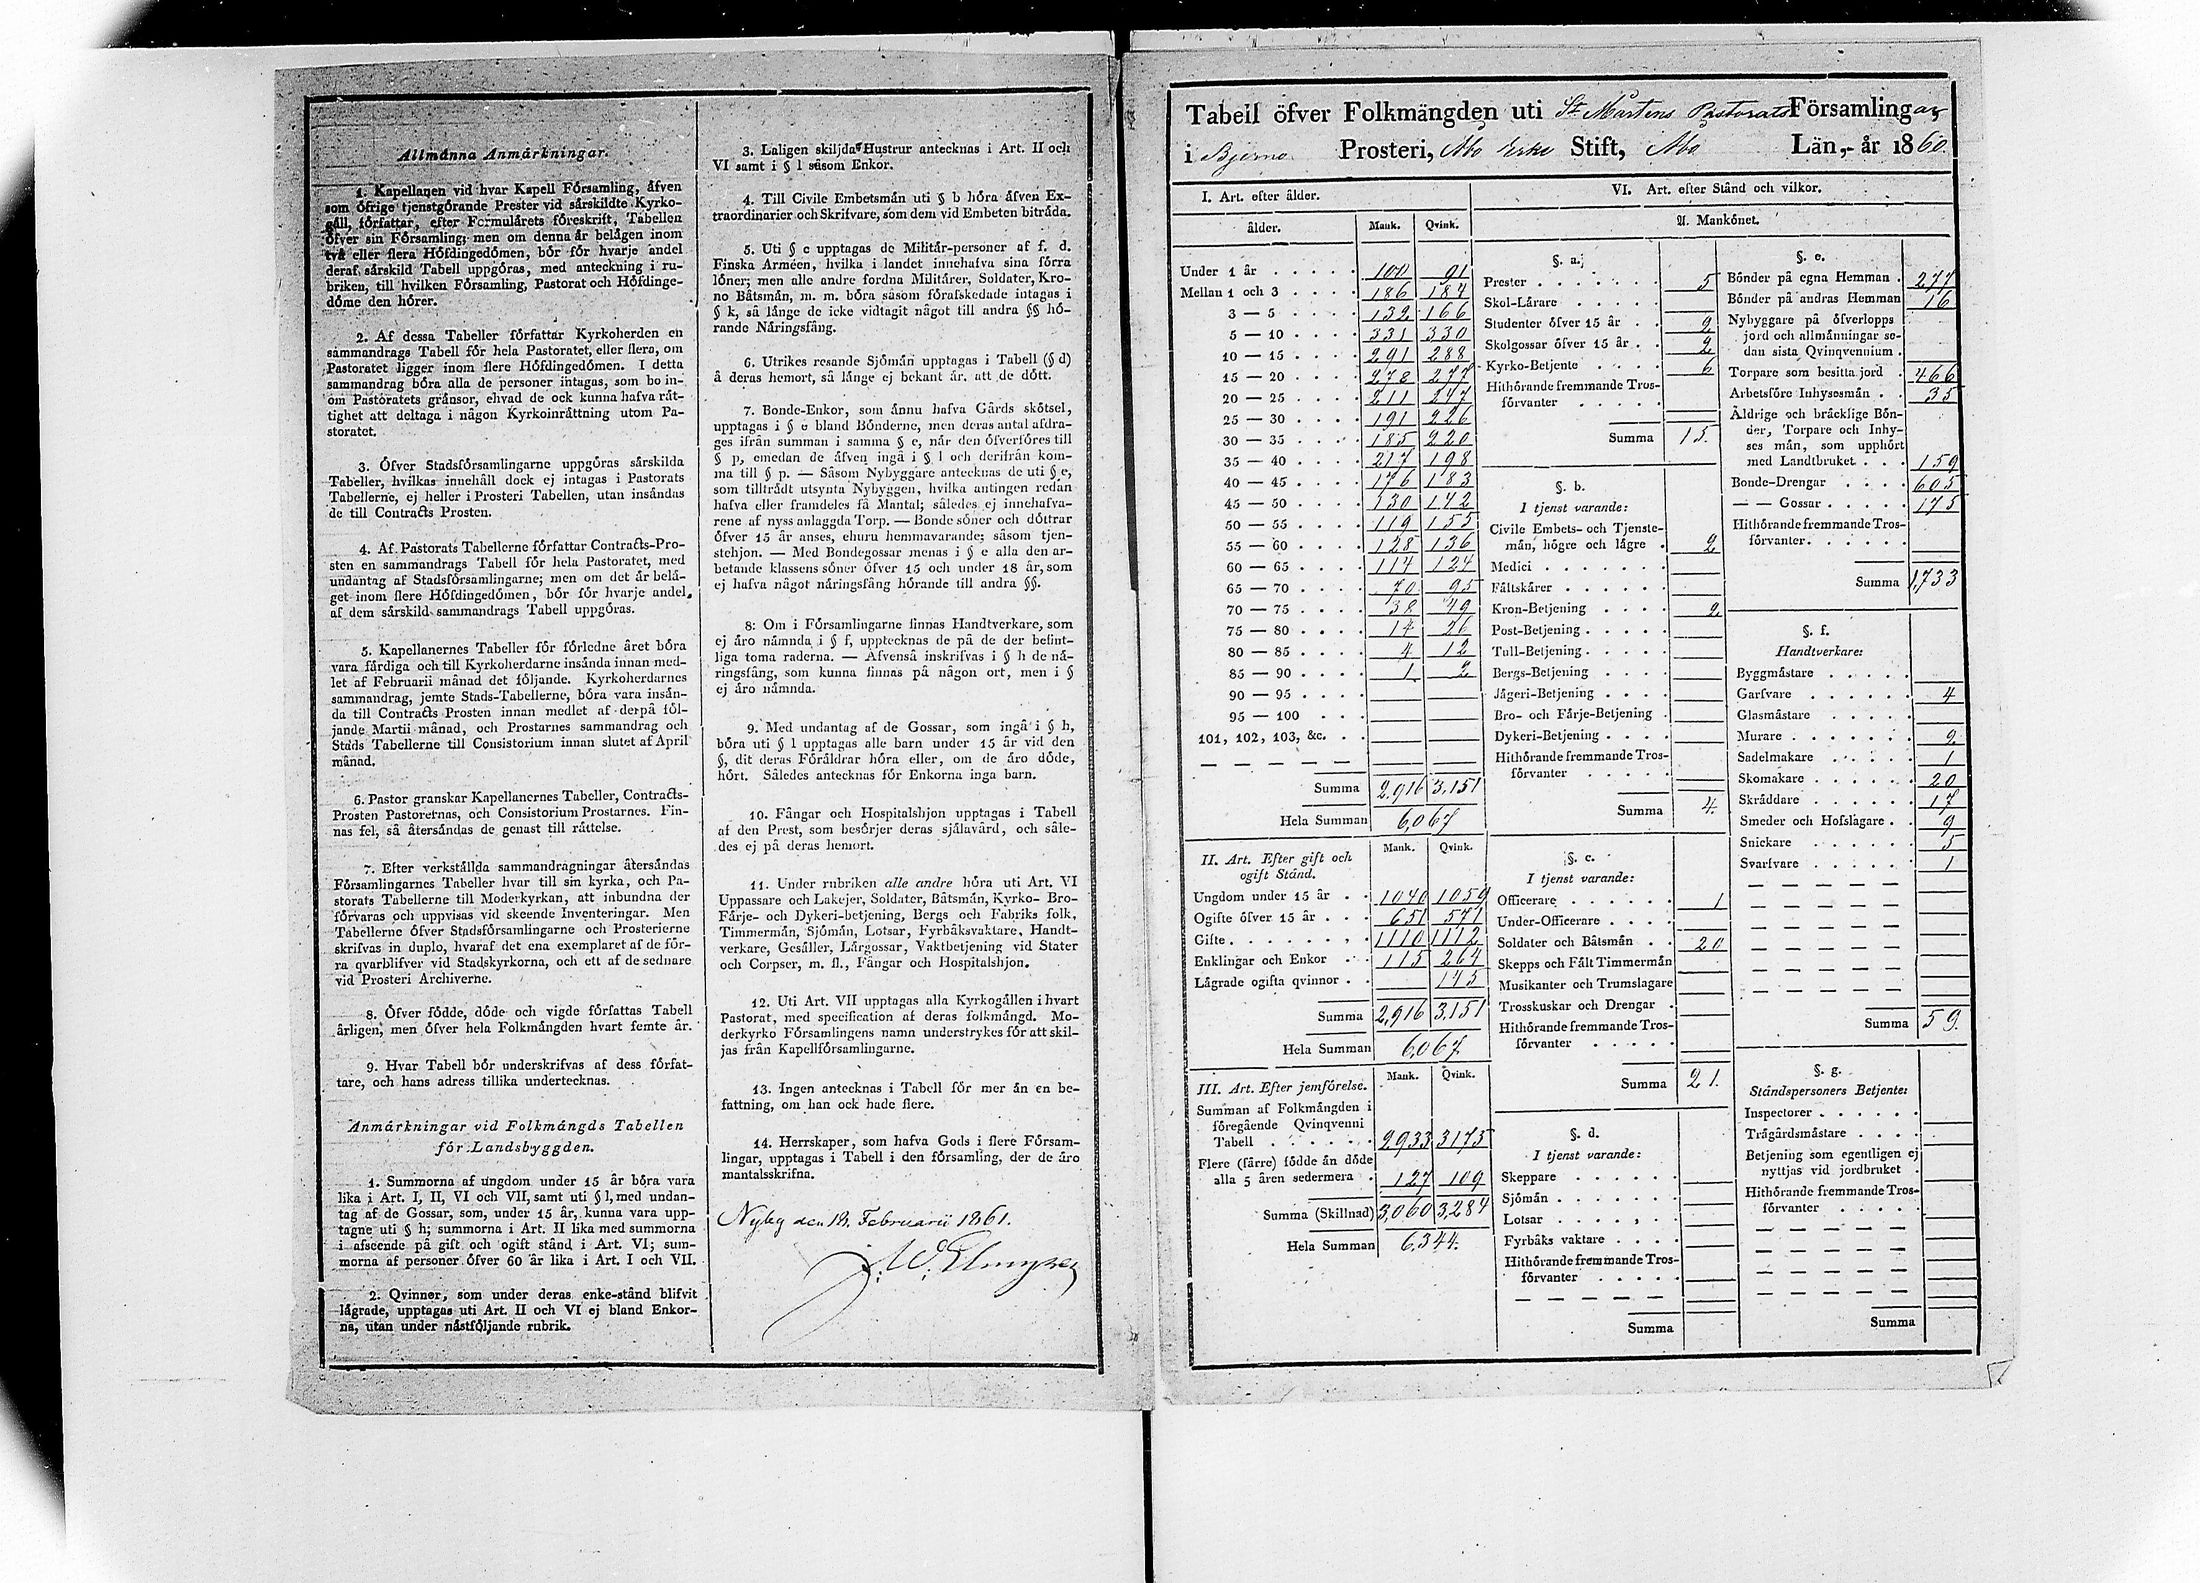 Allmånna Anmårkningar.
1. Kapellanen vid hvar Kapell Fórsamling, åfven
som ófrige tjenstgórande Prester vid sårskildte Kyrko-
gåll, fórfattar, efter Formulårets fóreskrift, Tabellen
ófver sin Fórsamling; men om denna år belågen inom
två eller flera Hófdingedómen, bór fór hvarje andel
deraf sårskild Tabell uppgóras, med anteckning i ru-
briken, till hvilken Fórsamling, Pastorat och Hófdinge-
dóme den hórer.
2. Af dessa Tabeller fórfattar Kyrkoherden en
sammandrags Tabell fór hela Pastoratet, eller flera, om
Pastoratet ligger inom flere Hófdingedómen. I detta
sammandrag bóra alla de personer intagas, som bo in-
om Pastoratets grånsor, ehvad de ock kunna hafva råt-
tighet att deltaga i någon Kyrkoinråttning utom Pa-
storatet.
3. Öfver Stadsfórsamlingarne uppgóras sårskilda
Tabeller, hvilkas innehåll dock ej intagas i Pastorats
Tabellerne, ej heller i Prosteri Tabellen, utan insåndas
de till Contracts Prosten.
4. Af Pastorats Tabellerne fórfattar Contracts-Pro-
sten en sammandrags Tabell fór hela Pastoratet, med
undantag af Stadsfórsamlingarne; men om det år belå-
get inom flere Hófdingedómen, bór fór hvarje andel
af dem sårskild sammandrags Tabell uppgóras.
5. Kapellanernes Tabeller fór fórledne året bóra
vara fårdiga och till Kyrkoherdarne insånda innan med-
let af Februarii månad det fóljande. Kyrkoherdarnes
sammandrag, jemte Stads-Tabellerne, bóra vara insån-
da till Contracts Prosten innan medlet af derpå fól-
jande Martii månad, och Prostarnes sammandrag och
Stads Tabellerne till Consistorium innan slutet af April
månad.
6. Pastor granskar Kapellanernes Tabeller, Contracts-
Prosten Pastorernas, och Consistorium Prostarnes. Fin-
nas fel, så återsåndas de genast till råttelse.
7. Efter verkstållda sammandragningar återsåndas
Fórsamlingarnes Tabeller hvar till sin kyrka, och Pa-
storats Tabellerne till Moderkyrkan, att inbundna der
fórvaras och uppvisas vid skeende Inventeringar. Men
Tabellerne ófver Stadsfórsamlingarne och Prosterierne
skrifvas in duplo, hvaraf det ena exemplaret af de fór-
ra qvarblifver vid Stadskyrkorna, och ett af de sednare
vid Prosteri Archiverne.
8. Öfver fódde, dóde och vigde fórfattas Tabell
årligen, men ófver hela Folkmångden hvart femte år.
9. Hvar Tabell bór underskrifvas af dess fórfat-
tare, och hans adress tillika undertecknas.
Anmårkningar vid Folkmångds Tabellen
fór Landsbyggden.
1. Summorna af ungdom under 15 år bóra vara
lika i Art. I, II, VI och VII, samt uti § l, med undan-
tag af de Gossar, som, under 15 år, kunna vara upp-
tagne uti § h; summorna i Art. II lika med summorna
i afseende på gift och ogift stånd i Art. VI; sum-
morna af personer ófver 60 år lika i Art. I och VII.
2. Qvinnor, som under deras enke-stånd blifvit
lågrade, upptagas uti Art. II och VI ej bland Enkor-
na, utan under nåstfóljande rubrik.
3. Laligen skiljda Hustrur antecknas i Art. II och
VI samt i § l såsom Enkor.
4. Till Civile Embetsmån uti § b hóra åfven Ex-
traordinarier och Skrifvare, som dem vid Embeten bitråda.
5. Uti § c upptagas de Militår-personer af f. d.
Finska Arméen, hvilka i landet innehafva sina fórra
lóner; men alle andre fordna Militårer, Soldater, Kro-
no Båtsmån, m. m. bóra såsom fórafskedade intagas i
§ k, så långe de icke vidtagit något till andra §§ hó-
rande Nåringsfång.
6. Utrikes resande Sjómån upptagas i Tabell (§ d)
å deras hemort, så långe ej bekant år, att de dótt.
7. Bonde-Enkor, som ånnu hafva Gårds skótsel,
upptagas i § e bland Bónderne, men deras antal afdra-
ges ifrån summan i samma § e, når den ófverfóres till
§ p, emedan de åfven ingå i § l och derifrån kom-
ma till § p. — Såsom Nybyggare antecknas de uti § e,
som tilltrådt utsynta Nybyggen, hvilka antingen redan
hafva eller framdeles få Mantal; således ej innehafva-
rene af nyss anlaggda Torp. — Bonde sóner och dóttrar
ófver 15 år anses, ehuru hemmavarande; såsom tjen-
stehjon. — Med Bondegossar menas i § e alla den ar-
betande klassens sóner ófver 15 och under 18 år, som
ej hafva något nåringsfång hórande till andra §§.
8: Om i Fórsamlingarne finnas Handtverkare, som
ej åro nåmnda i § f, upptecknas de på de der befint-
liga toma raderna. — Afvenså inskrifvas i § h de nå-
ringsfång, som kunna finnas på någon ort, men i §
ej åro nåmnda.
9. Med undantag af de Gossar, som ingå i § h,
bóra uti § l upptagas alle barn under 15 år vid den
§, dit deras Fóråldrar hóra eller, om de åro dóde,
hórt. Således antecknas fór Enkorna inga barn.
10. Fångar och Hospitalshjon upptagas i Tabell
af den Prest, som besórjer deras sjålavård, och såle-
des ej på deras hemort.
11. Under rubriken alle andre hóra uti Art. VI
Uppassare och Lakejer, Soldater, Båtsmån, Kyrko- Bro-
Fårje- och Dykeri-betjening, Bergs och Fabriks folk,
Timmermån, Sjómån, Lotsar, Fyrbåksvaktare, Handt-
verkare, Gesåller, Lårgossar, Vaktbetjening vid Stater
och Corpser, m. fl., Fångar och Hospitalshjon.
12. Uti Art. VII upptagas alla Kyrkogållen i hvart
Pastorat, med specification af deras folkmångd. Mo-
derkyrko Fórsamlingens namn understrykes fór att skil-
jas från Kapellfórsamlingarne.
13. Ingen antecknas i Tabell fór mer ån en be-
fattning, om han ock hade flere.
14. Herrskaper, som hafva Gods i flere Fórsam-
lingar, upptagas i Tabell i den fórsamling, der de åro
mantalsskrifna.
Nyby den 18. Februarii 1861.
Tabell öfver Folkmängden uti St Mårtens Pastorats Församlingar,
i Bjerno Prosteri, Åbo Erke Stift, Åbo Län, - år 1860.
I. Art. efter ålder.
ålder. Mank. Qvink.
Under 1 år 100 91
Mellan 1 och 3 186 184
3 — 5 132 166
5 — 10 331 330
10 — 15 291 288
15 — 20 278 277
20 — 25 211 247
25 — 30 191 226
30 — 35 185 220
35 — 40 217 198
40 — 45 176 183
45 — 50 130 142
50 — 55 119 155
55 — 60 128 136
60 — 65 114 124
65 — 70 70 95
70 — 75 38 49
75 — 80 14 26
80 — 85 4 12
85 — 90 1 2
90 — 95
95 — 100
101, 102, 103, &c.
Summa 2,916 3,151
Hela Summan 6,067
II. Art. Efter gift och
ogift Stånd. Mank. Qvink.
Ungdom under 15 år 1040 1059
Ogifte öfver 15 år 651 571
Gifte 1110 1112
Enklingar och Enkor 115 264
Lågrade ogifta qvinnor 145
Summa 2,916 3,151
Hela Summan 6,067
III. Art. Efter jemfórelse. Mank. Qvink.
Summan af Folkmångden i
fóregående Qvinqvenni
Tabell 2,933 3175
Flere (fårre) fódde ån dóde
alla 5 åren sedermera 127 109
Summa (Skillnad) 3,060 3,284
Hela Summan 6,344.
VI. Art. efter Stånd och vilkor.
A. Mankónet.
§. a.
Prester 5
Skol-Lårare
Studenter ófver 15 år 2
Skolgossar ófver 15 år 2
Kyrko-Betjente 6
Hithórande fremmande Tros-
fórvanter
Summa 15.
§. b.
I tjenst varande:
Civile Embets- och Tjenste-
mån, hógre och lågre 2
Medici
Fåltskårer
Kron-Betjening 2
Post-Betjening
Tull-Betjening
Bergs-Betjening
Jågeri-Betjening
Bro- och Fårje-Betjening
Dykeri-Betjening
Hithórande fremmande Tros-
fórvanter
Summa 4.
§. c.
I tjenst varande:
Officerare 1
Under-Officerare
Soldater och Båtsmån 20
Skepps och Fålt Timmermån
Musikanter och Trumslagare
Trosskuskar och Drengar
Hithórande fremmande Tros-
fórvanter
Summa 21.
§. d.
I tjenst varande:
Skeppare
Sjómån
Lotsar
Fyrbåks vaktare
Hithórande fremmande Tros-
fórvanter
Summa
§. e.
Bónder på egna Hemman 277
Bónder på andras Hemman 16
Nybyggare på ófverlopps
jord och allmånningar se-
dan sista Qvinqvennium
Torpare som besitta jord 466
Arbetsfóre Inhysesmån 35
Åldrige och bråcklige Bón-
der, Torpare och Inhy-
ses mån, som upphórt
med Landtbruket 159
Bonde-Drengar 605
— — Gossar 175
Hithórande fremmande Tros-
fórvanter
Summa 1,733
§. f.
Handtverkare:
Byggmåstare
Garfvare 4
Glasmåstare
Murare 2
Sadelmakare 1
Skomakare 20
Skråddare 17
Smeder och Hofslagare 9
Snickare 5
Svarfvare 1
Summa 59.
§. g.
Ståndspersoners Betjente:
Inspectorer
Trågårdsmåstare
Betjening som egentligen ej
nyttjas vid jordbruket
Hithórande fremmande Tros-
fórvanter
Summa